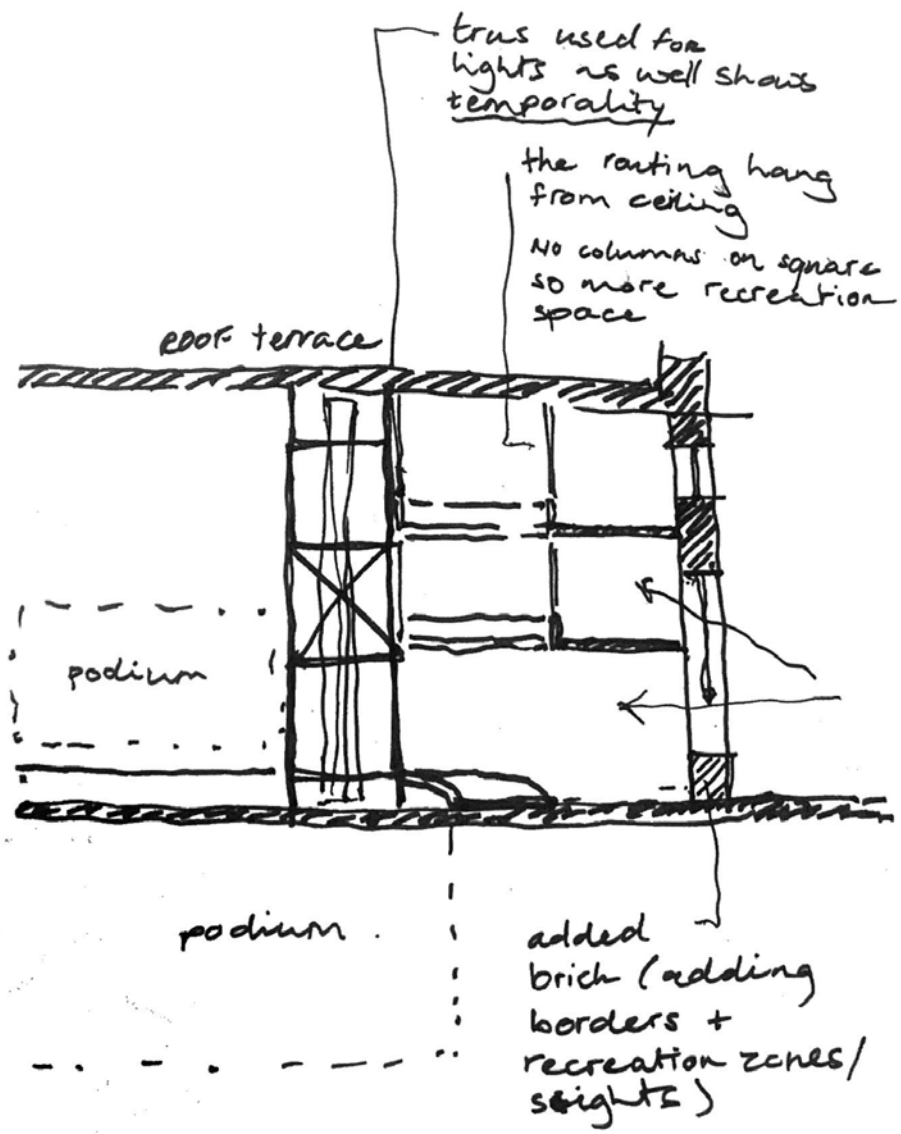 trus used for
lights as well shows
temporality
the routing hang
from ceiling
No columns on square
so more recreation
space
ROOF terrace
podium
podium.
added
brick (adding
borders +
recreation zones/
)